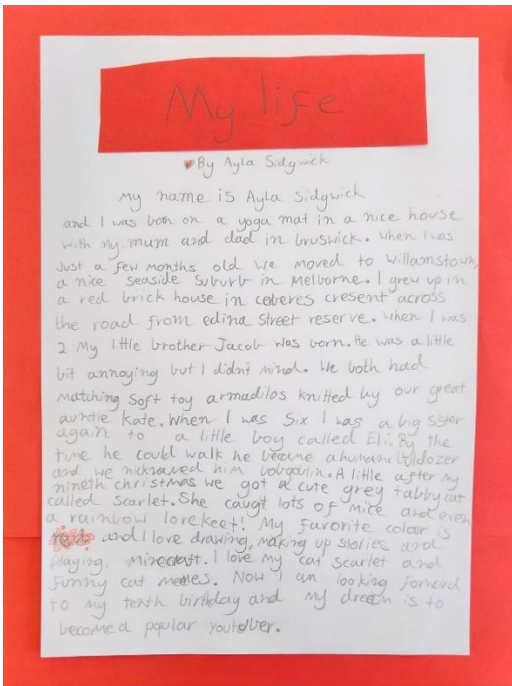 My life
By Ayla Sidgwick
My name is Ayla Sidgwick
and I was born on a yoga mat in a nice house
with my mum and dad in bruswick. When I was
Just a few months old we moved to Willamstown,
a nice seaside suburb in Melborne. I grew up in
a red brick house in cresent across
the road from edina Street reserve. When I was
2 My little brother Jacob was born. He was a little
bit annoying but I didn't mind. We both had
matching soft toy armadilos knitted by our great
auntie Kate. When I was Six I was a big sister
again to a little boy called Eli. By the
time he could walk he became a human buldozer
and we nicknamed him bobgoblin. A little after my
nineth christmas we got a cute grey tabby cat
called Scarlet. She caugt lots of mice and even
a rainbow lorekeet! My favorite color is
and I love drawing, making up stories and
playing, Minecraft. I love my cat Scarlet and
funny cat memes. Now I am looking forward
to my tenth birthday and my dream is to
become a popular youtuber.